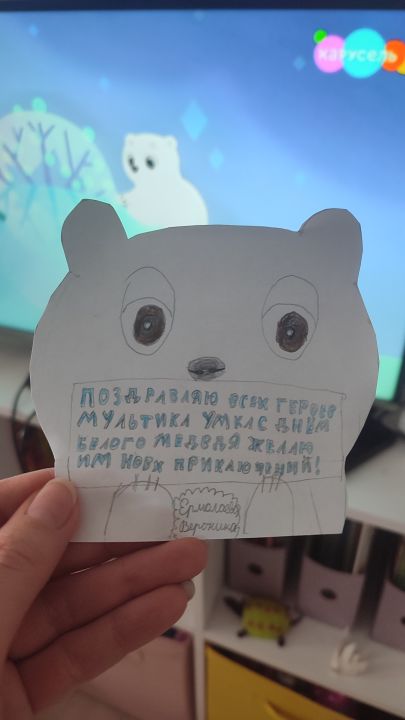 КАРУСЕЛЬ
ПОЗДРАВЛЯЮ ВСЕХ ГЕРОЕВ
МУЛЬТИКА УМКА С ДНЕМ
БЕЛОГО МЕДВЕДЯ ЖЕЛАЮ
ИМ НОВХ ПРИКЛЮЧЕНИЙ!
Ермолаева
Вероника